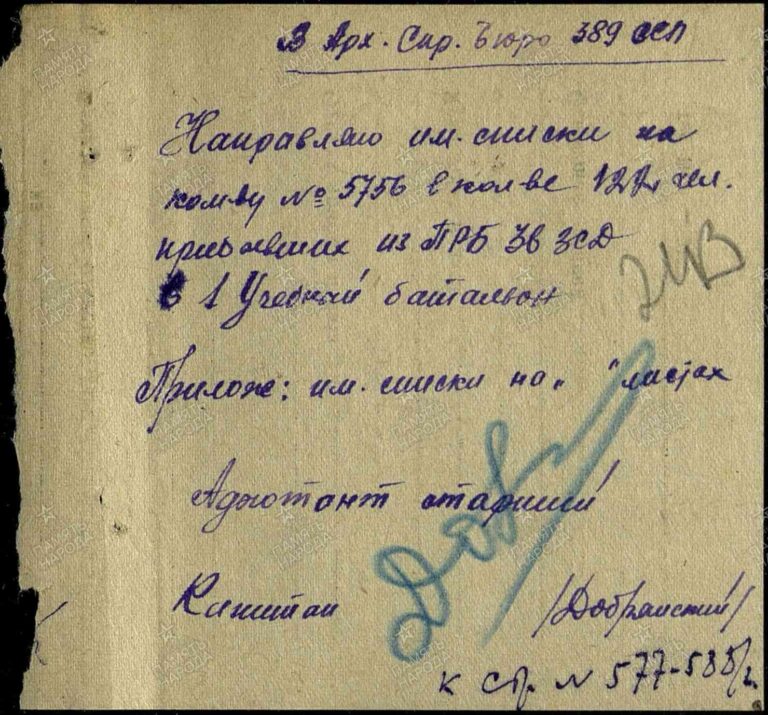 В Арх. Спр. Бюро 389 ССП
Направляю им. списки на
ком-ву № 5756 в кол-ве чел.
прибывших из ПРБ ЗСД
в 1 Учебный батальон
Прилож: им. списки на " " листах
Адютант старший
Капитан /Добранский/
к стр. N 577-588